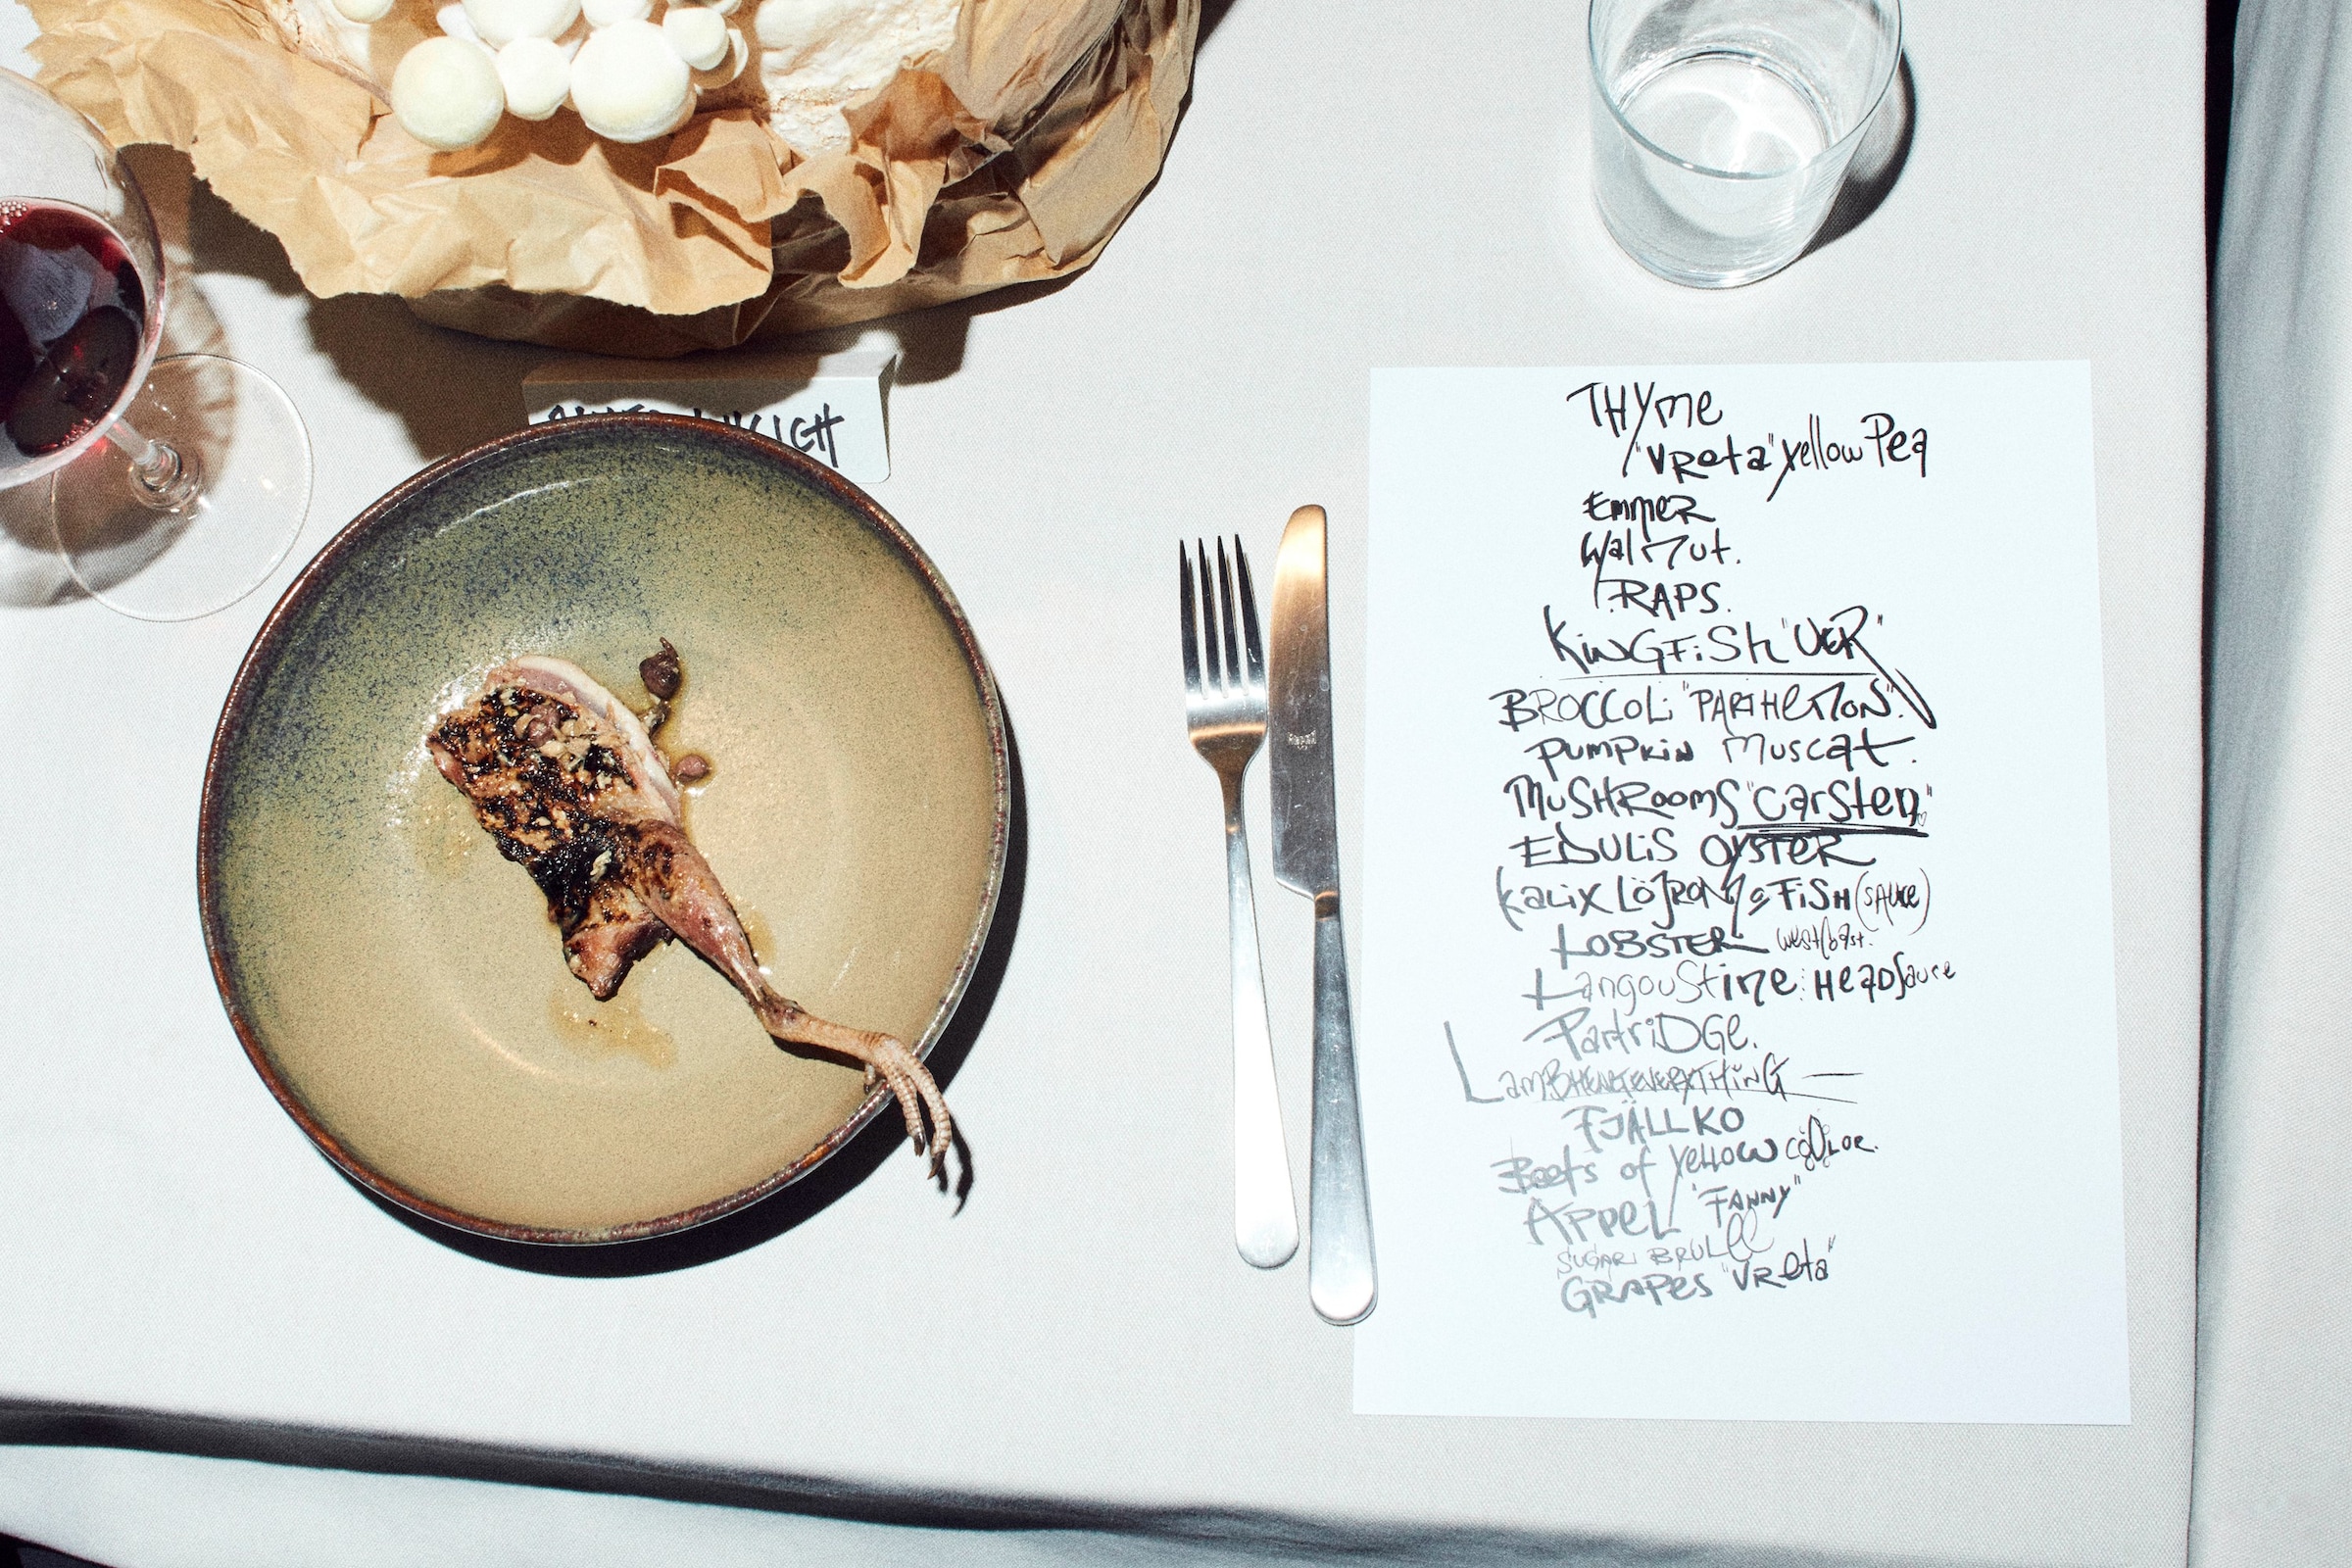 THYme
"Vreta" Yellow Pea
EmmeR
Walnut.
RAPS.
KiNGFiSH "UER"
BROCCOLi "PARTHENON".
PUMPKiN MUSCaT.
MUSHROOMS "Carsten"
EDULiS OYSTER
KaLiX LÖJROM & FiSH (SAUCE)
LOBSTER westcoast.
LangouStine: HEaDSauce
PartriDGe.
LamBHEARTEVERYTHiNG —
FJÄLLKO
Beets of Yellow COOLOR.
APPeL "FANNY"
SUGAR BRULee
GRAPES "VReta"